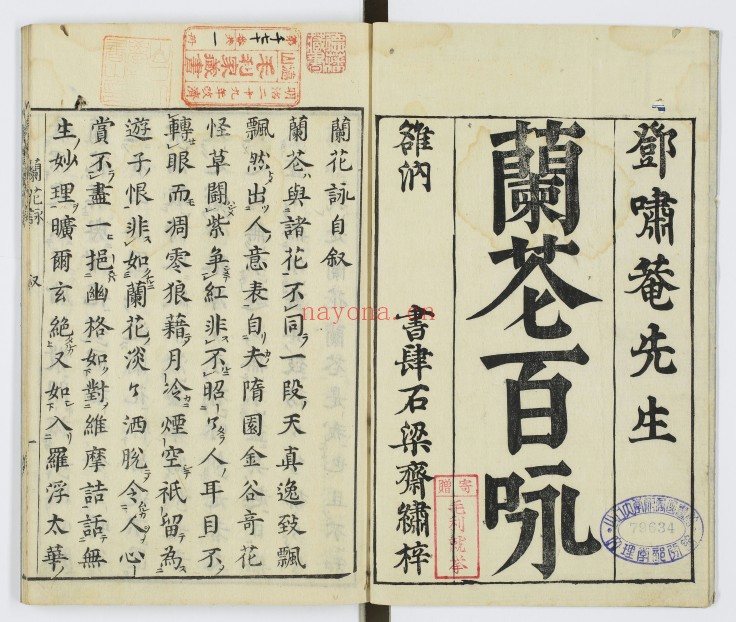 鄧嘯菴先生
蘭芲百咏
雒汭　書肆石梁齋繡梓
寄贈
毛利就挙
79634
毛利家藏書
明治二十九年改濟
蘭花詠自叙
蘭芲與諸花不同一段天真逸致飄
飄然出人意表自夫隋園金谷奇花
怪草鬪紫爭紅非不昭々人耳目不
轉眼而凋零狼藉月冷煙空祇留為
遊子恨非如蘭花淡々洒脫令人心
賞不盡一挹幽格如對維摩詰話無
生妙理曠爾玄絕又如入羅浮太華
蘭花詠　叙　一
nayona.cn